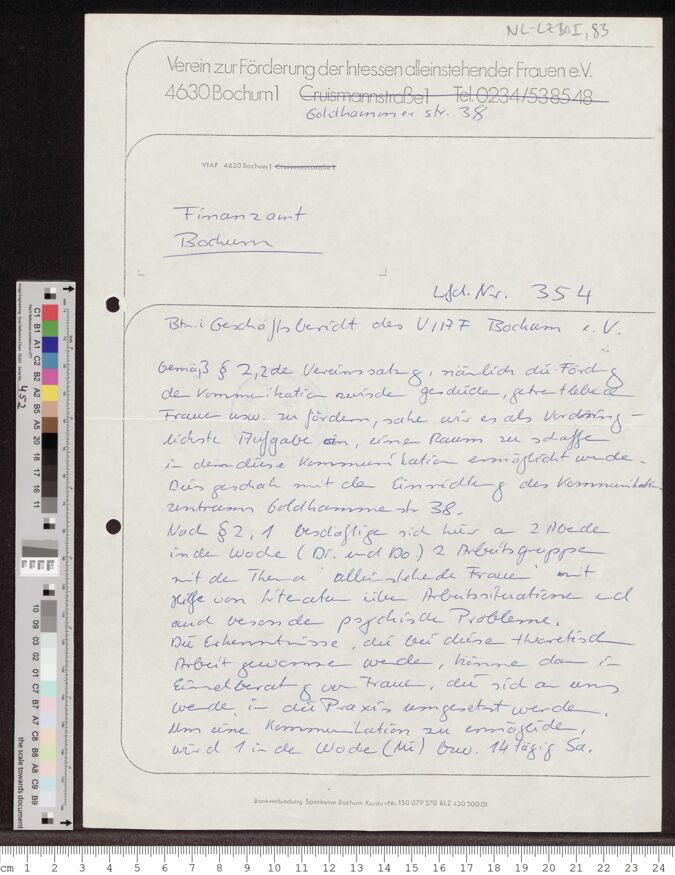 NL-LZBOI, 83
Verein zur Förderung der Intessen alleinstehender Frauen e.V.
4630 Bochum 1 Cruismannstraße 1 Tel. 0234/538548
Goldhammer str. 38
VIAF 4630 Bochum 1 Cruismannstraße 1
Finanzamt
Bochum
Lfd. Nr. 354
Btr.: Geschäftsbericht des VIAF Bochum e. V.
Gemäß § 2,2 der Vereinssatzung, nämlich die Förderung
der Kommunikation zwischen geschiedenen, getrennt lebenden
Frauen usw. zu fördern, sahen wir es als vordring-
lichste Aufgabe an, einen Raum zu schaffen
in dem diese Kommunikation ermöglicht wurde.
Dies geschah mit der Einrichtung des Kommunikations
zentrums Goldhammerstr 38.
Nach § 2, 1 beschäftigen sich hier an 2 Abenden
in der Woche (Di. und Do.) 2 Arbeitsgruppen
mit dem Thema "alleinstehende Frauen" mit
Hilfe von Literatur über Arbeitssituationen und
und besondere psychische Probleme.
Die Erkenntnisse, die bei dieser theoretischen
Arbeit gewonnen werden, können dann in
Einzelberatung von Frauen, die sich an uns
wenden in die Praxis umgesetzt werden.
Um eine Kommunikation zu ermöglichen,
wird 1 in der Woche (Mi) bzw. 14 tägig Sa.
Bankverbindung Sparkasse Bochum Konto-Nr. 150 079 370 BLZ 430 500 01
452
the scale towards document
cm 1 2 3 4 5 6 7 8 9 10 11 12 13 14 15 16 17 18 19 20 21 22 23 24